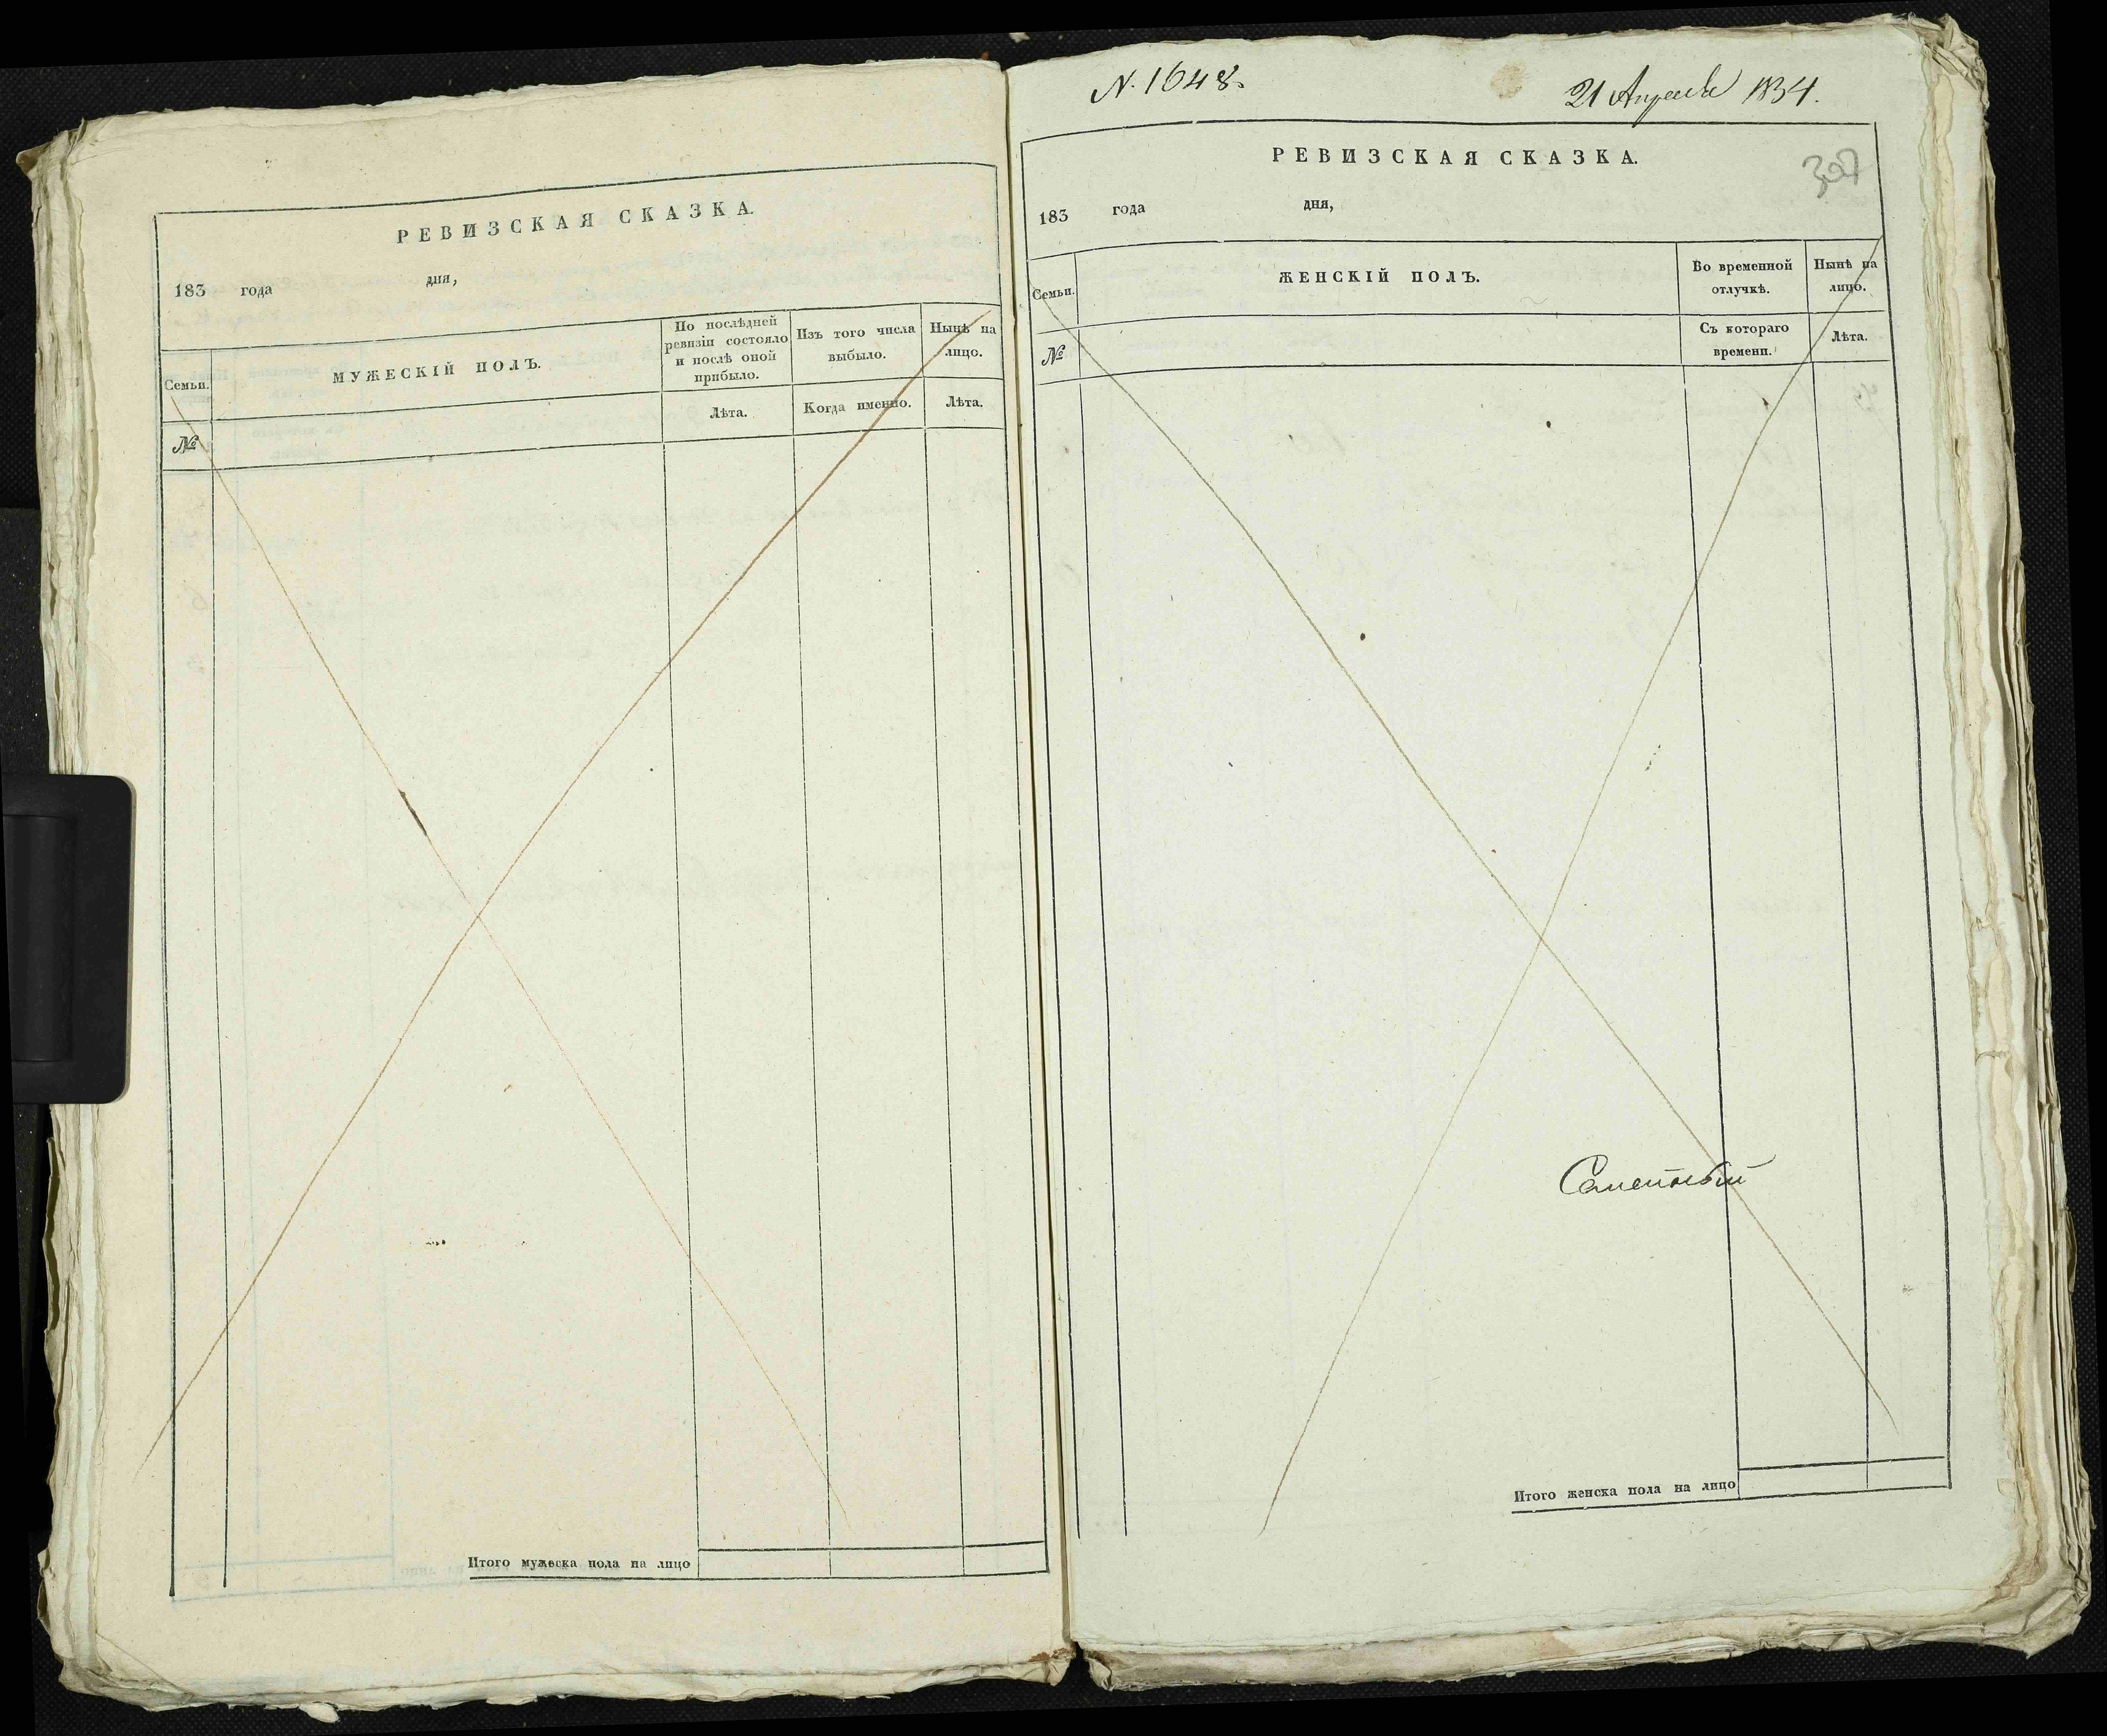 РЕВИЗСКАЯ СКАЗКА.
183 года дня,
Семьи.
МУЖЕСКІЙ ПОЛЪ.
По послѣдней
ревизіи состояло
и послѣ оной
прибыло.
Изъ того числа
выбыло.
Нынѣ на
лицо.
№
Лѣта.
Когда именно.
Лѣта.
Итого мужеска пола на лицо
N. 1648.
21 Апреля 1834.
РЕВИЗСКАЯ СКАЗКА.
183 года дня,
Семьи.
ЖЕНСКІЙ ПОЛЪ.
Во временной
отлучкѣ.
Нынѣ на
лицо.
№
Съ котораго
времени.
Лѣта.
Итого женска пола на лицо